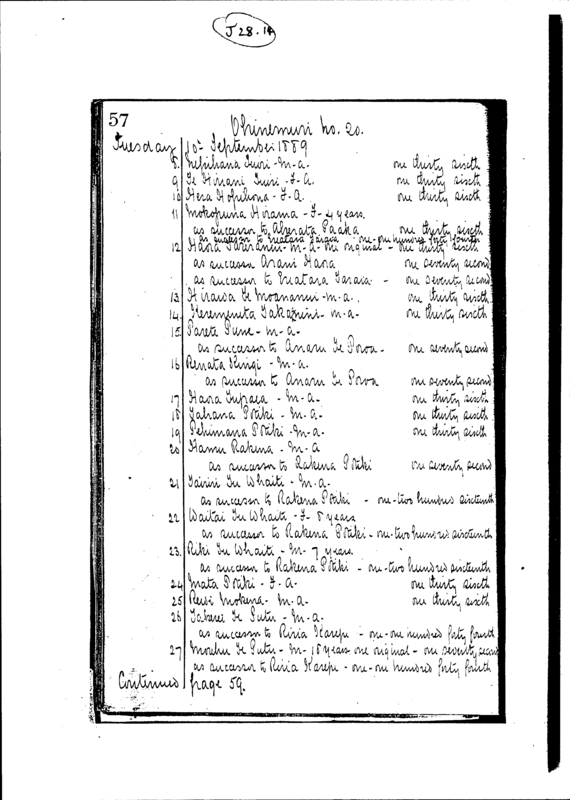 J 28.14
57
Ohinemuri No. 20.
Tuesday 10th September 1889
8 Turi - M - A. one thirty sixth
9 Te Hirani Turi - F - A. one thirty sixth
10 Hera Hopihona - F. A. one thirty sixth
11 Mokopuna Hirama - F - 4 years.
as successor to Paaka one thirty sixth
as successor to Taraia - one - one hundred forty fourth
12 Hana - M - A - one original - one thirty sixth
as successor Arani Hana one seventy second
as successor to Taraia - one seventy second
13 Hiraida Te Moananui - M - A. one thirty sixth
14 - M - A - one thirty sixth
15 Parete Pune - M - A -
as successor to Anaru Te Poroa - one seventy second
16 Renata Kingi - M - A.
as successor to Anaru Te Poroa one seventy second
17 Hana Tupaea - M - A. one thirty sixth
18 Tahana Potiki - M. A. one thirty sixth
19 Pehimana Potiki - M - A - one thirty sixth
20 Hamu Rakena - M - A
as successor to Rakena Potiki one seventy second
21 Tairiri Te Whaiti - M - A.
as successor to Rakena Potiki - one - two hundred sixteenth
22 Waitai Te Whaiti - F - 8 years
as successor to Rakena Potiki - one - two hundred sixteenth
23. Riki Te Whaiti - M - 7 years.
as successor to Rakena Potiki - one - two hundred sixteenth
24 Mata Potiki - F. A. one thirty sixth
25 Rewi Mokena - M. A. one thirty sixth
26 Takerei Te Putu - M - A.
as successor to Riria Karepe - one - one hundred forty fourth
27 Morehu Te Putu - M - 18 years one original - one seventy second
as successor to Riria Karepe - one - one hundred forty fourth
Continued page 59.